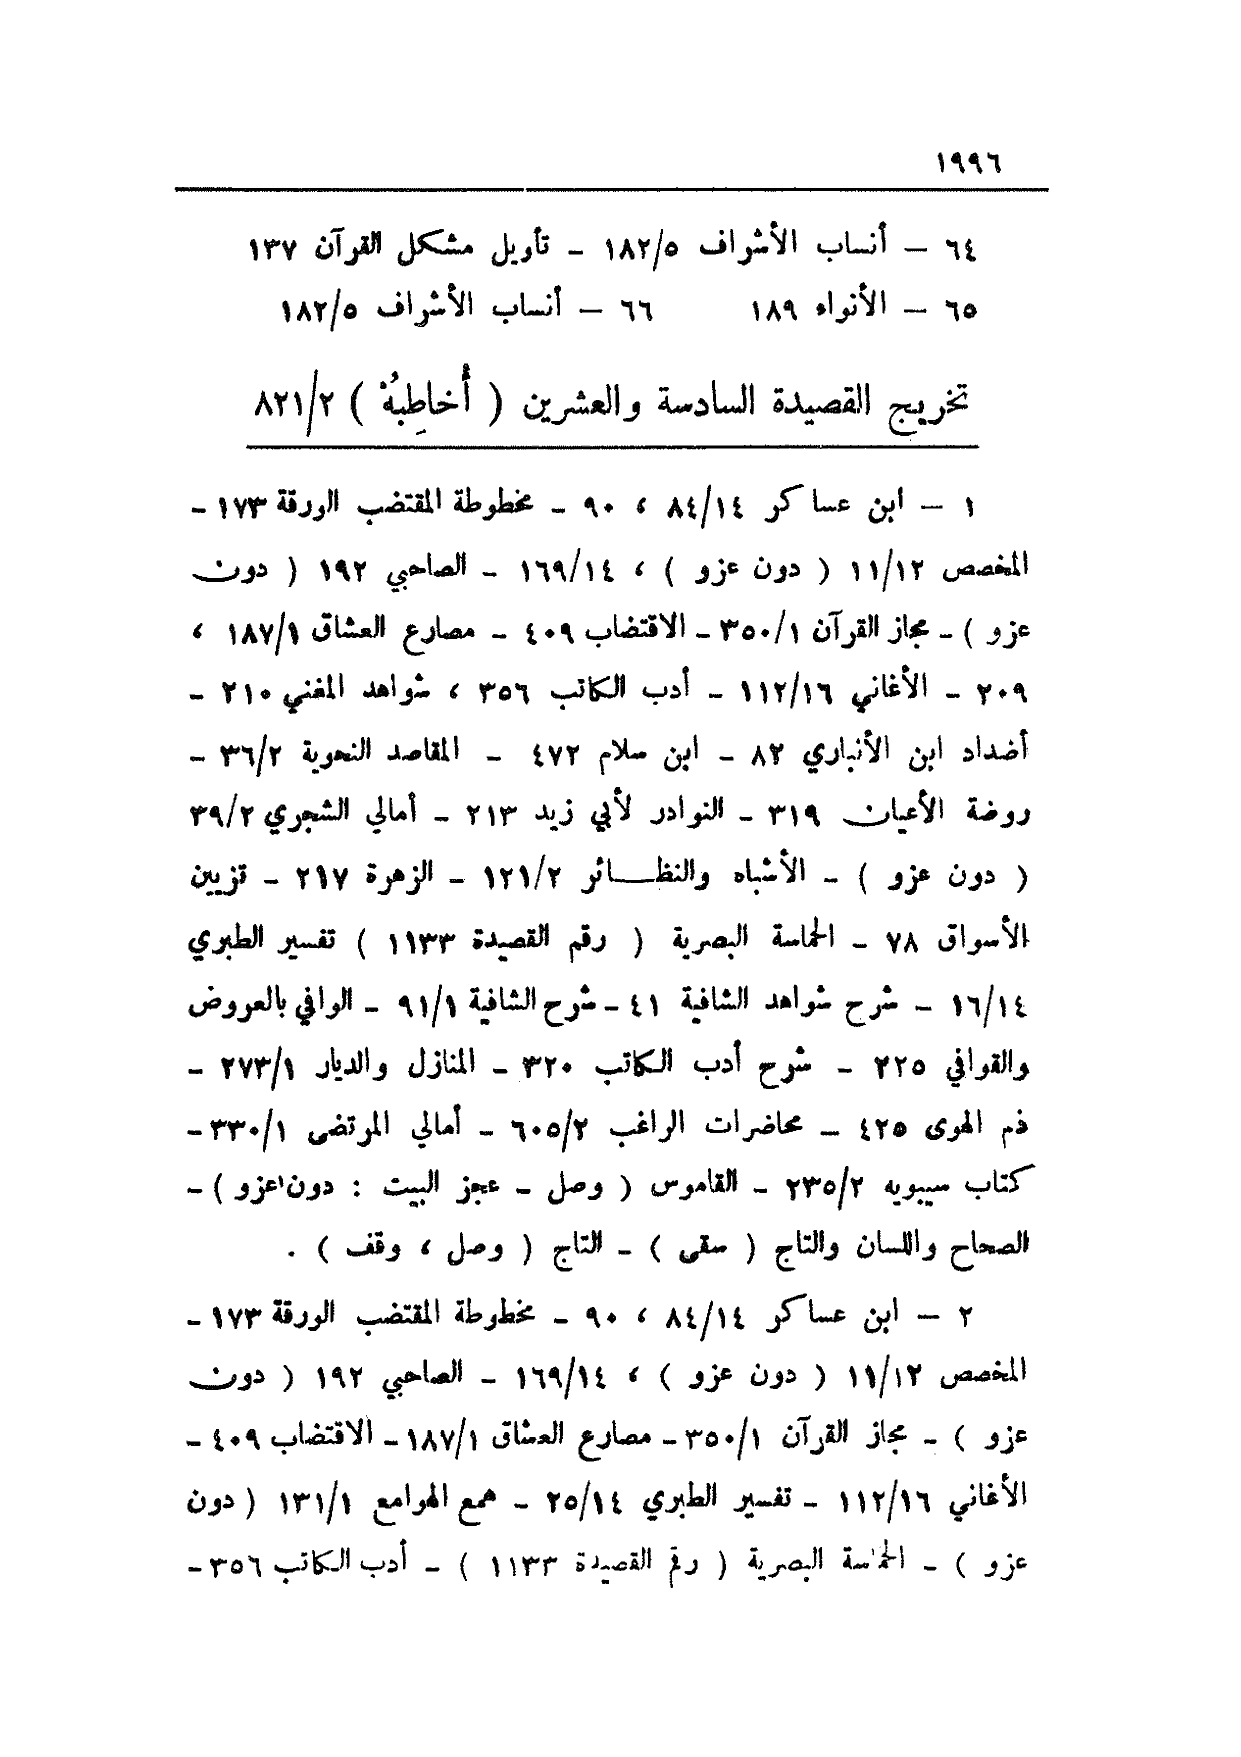 ١٩٩٦
٦٤ – أنساب الأشراف ١٨٢/٥ – تأويل مشكل القرآن ١٣٧
٦٥ – الأنواء ١٨٩ ٦٦ – أنساب الأشراف ١٨٢/٥
تخريج القصيدة السادسة والعشرين ( أُخاطِبُهْ ) ٨٢١/٢
١ – ابن عساكر ٨٤/١٤ ، ٩٠ – مخطوطة المقتضب الورقة ١٧٣ –
المخصص ١١/١٢ ( دون عزو ) ، ١٦٩/١٤ – الصاحبي ١٩٢ ( دون
عزو ) – مجاز القرآن ٣٥٠/١ – الاقتضاب ٤٠٩ – مصارع العشاق ١٨٧/١ ،
٢٠٩ – الأغاني ١١٢/١٦ – أدب الكاتب ٣٥٦ ، شواهد المغني ٢١٠ –
أضداد ابن الأنباري ٨٢ – ابن سلام ٤٧٢ – المقاصد النحوية ٣٦/٢ –
روضة الأعيان ٣١٩ – النوادر لأبي زيد ٢١٣ – أمالي الشجري ٣٩/٢
( دون عزو ) – الأشباه والنظائر ١٢١/٢ – الزهرة ٢١٧ – تزيين
الأسواق ٧٨ – الحماسة البصرية ( رقم القصيدة ١١٣٣ ) تفسير الطبري
١٦/١٤ – شرح شواهد الشافية ٤١ – شرح الشافية ٩١/١ – الوافي بالعروض
والقوافي ٢٢٥ – شرح أدب الكاتب ٣٢٠ – المنازل والديار ٢٧٣/١ –
ذم الهوى ٤٢٥ – محاضرات الراغب ٦٠٥/٢ – أمالي المرتضى ٣٣٠/١ –
كتاب سيبويه ٢٣٥/٢ – القاموس ( وصل – عجز البيت : دون عزو ) –
الصحاح واللسان والتاج ( سقى ) – التاج ( وصل ، وقف ) .
٢ – ابن عساكر ٨٤/١٤ ، ٩٠ – مخطوطة المقتضب الورقة ١٧٣ –
المخصص ١١/١٢ ( دون عزو ) ، ١٦٩/١٤ – الصاحبي ١٩٢ ( دون
عزو ) – مجاز القرآن ٣٥٠/١ – مصارع العشاق ١٨٧/١ – الاقتضاب ٤٠٩ –
الأغاني ١١٢/١٦ – تفسير الطبري ٢٥/١٤ – همع الهوامع ١٣١/١ ( دون
عزو ) – الحماسة البصرية ( رقم القصيدة ١١٣٣ ) – أدب الكاتب ٣٥٦ –